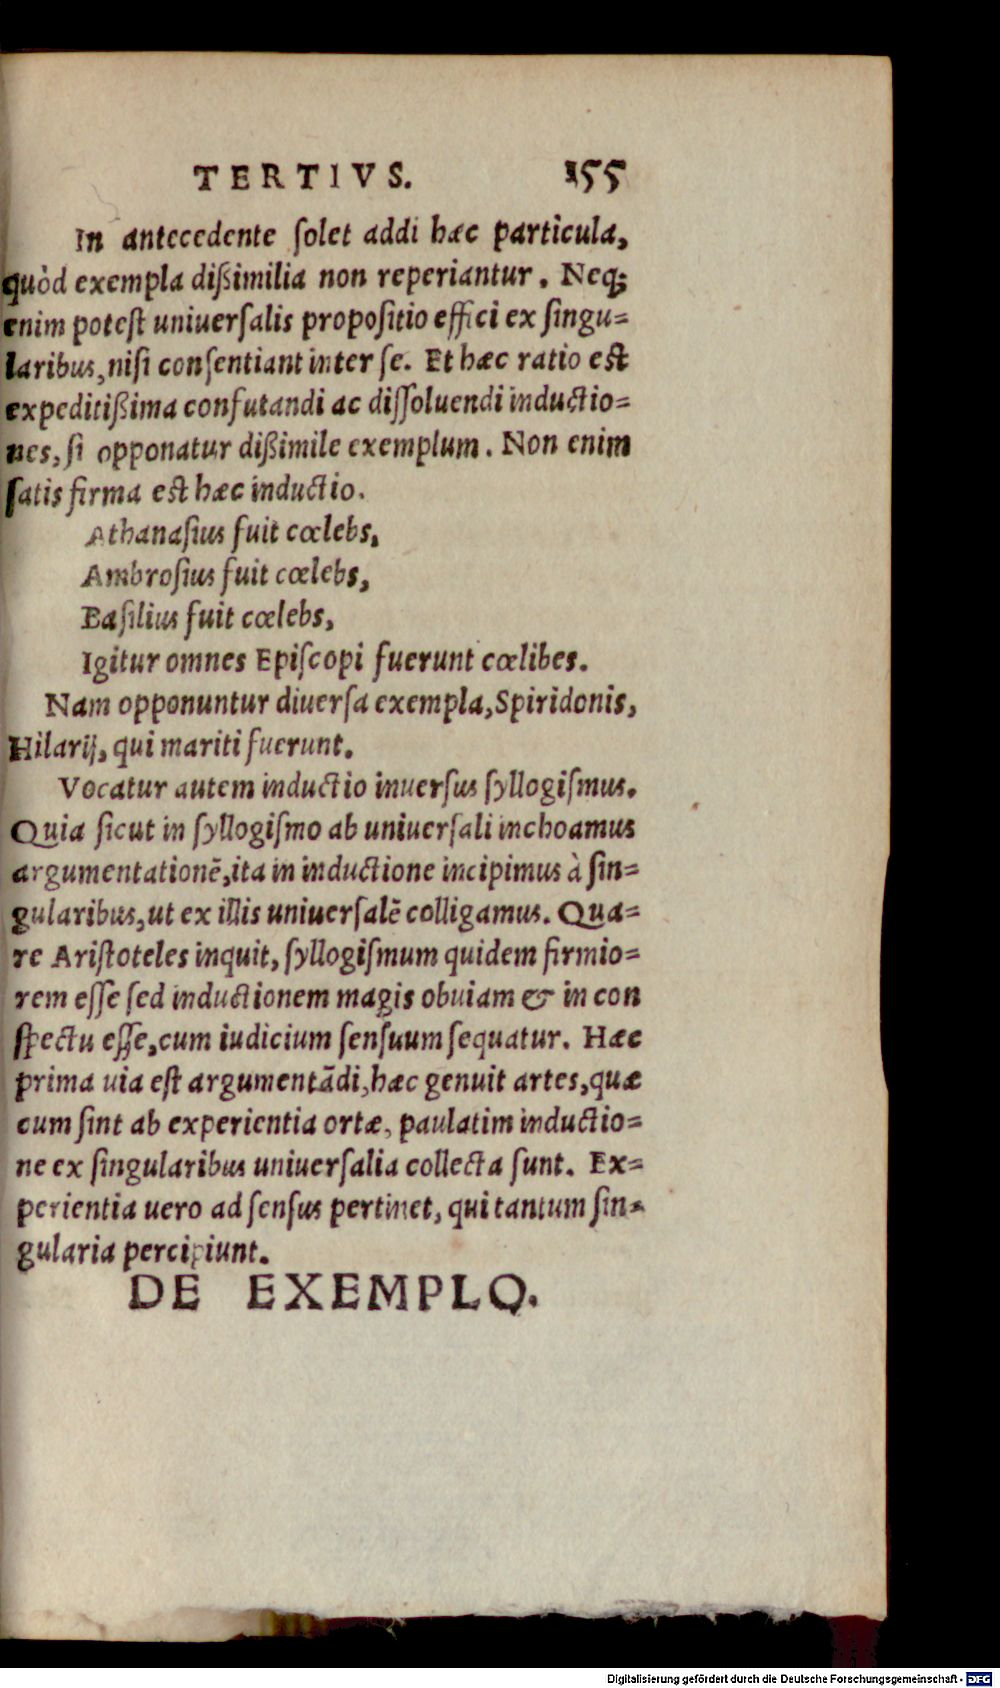 TERTIVS. 155
In antecedente ſolet addi hæc particula,
quòd exempla dißimilia non reperiantur. Neq;
enim poteſt uniuerſalis propoſitio effici ex ſingu=
laribus, niſi conſentiant inter ſe. Et hæc ratio eſt
expeditißima confutandi ac diſſoluendi inductio=
nes, ſi opponatur dißimile exemplum. Non enim
ſatis firma eſt hæc inductio.
Athanaſius fuit cœlebs,
Ambroſius fuit cœlebs,
Baſilius fuit cœlebs,
Igitur omnes Epiſcopi fuerunt cœlibes.
Nam opponuntur diuerſa exempla, Spiridonis,
Hilarij, qui mariti fuerunt.
Vocatur autem inductio inuerſus ſyllogiſmus.
Quia ſicut in ſyllogiſmo ab uniuerſali inchoamus
argumentationẽ, ita in inductione incipimus à ſin=
gularibus, ut ex illis uniuerſalẽ colligamus. Qua=
re Ariſtoteles inquit, ſyllogiſmum quidem firmio=
rem eſſe ſed inductionem magis obuiam & in con
ſpectu eſſe, cum iudicium ſenſuum ſequatur. Hæc
prima uia eſt argumentãdi, hæc genuit artes, quæ
cum ſint ab experientia ortæ, paulatim inductio=
ne ex ſingularibus uniuerſalia collecta ſunt. Ex=
perientia uero ad ſenſus pertinet, qui tantum ſin=
gularia percipiunt.
DE EXEMPLO.
Digitalisierung gefördert durch die Deutsche Forschungsgemeinschaft - DFG